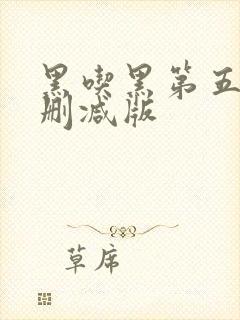 黑喫黑第五
删减版
草席